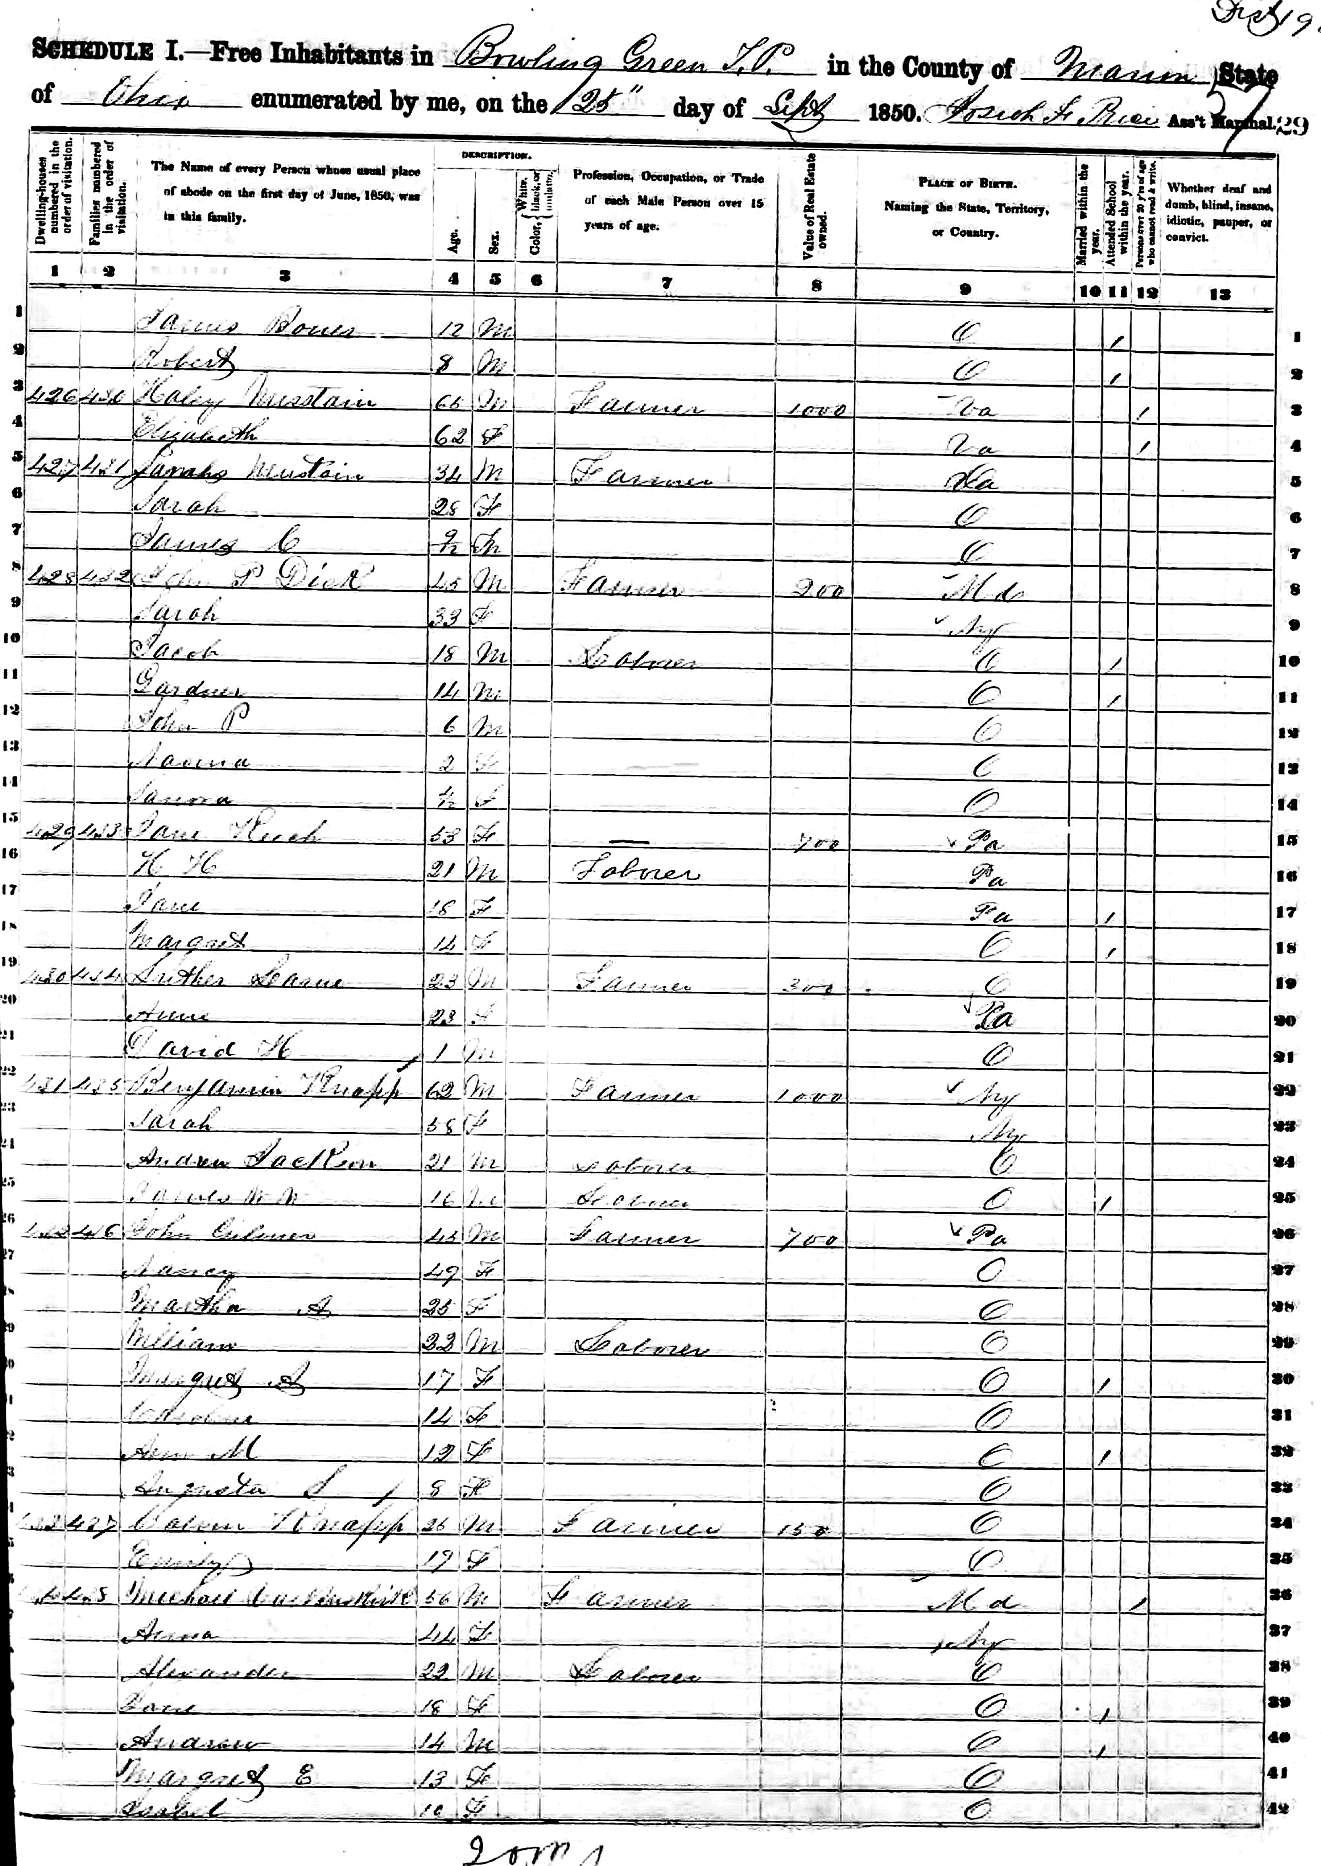 19
SCHEDULE I.—Free Inhabitants in Bowling Green T.P. in the County of Marion State
of Ohio enumerated by me, on the 25" day of Sept 1850. Ass't Marshal. 29
Dwelling-houses numbered in the order of visitation. Families numbered in the order of visitation. The Name of every Person whose usual place of abode on the first day of June, 1850, was in this family. DESCRIPTION. Age. Sex. Color, { White, black, or mulatto. Profession, Occupation, or Trade of each Male Person over 15 years of age. Value of Real Estate owned. PLACE OF BIRTH. Naming the State, Territory, or Country. Married within the year. Attended School within the year. Persons over 20 y'rs of age who cannot read & write. Whether deaf and dumb, blind, insane, idiotic, pauper, or convict.
1 2 3 4 5 6 7 8 9 10 11 12 13
1 12 M O / 1
2 Robert 8 M O / 2
3 426 430 Haley 65 M Farmer 1000 Va / 3
4 Elizabeth 62 F Va / 4
5 427 431 Mustain 34 M Farmer Va 5
6 Sarah 28 F O 6
7 James C 9/12 M O 7
8 428 432 John P Dick 45 M Farmer 200 Md 8
9 Sarah 33 F NY 9
10 Jacob 18 M Laborer O / 10
11 Gardner 14 M O / 11
12 John P 6 M O 12
13 2 F O 13
14 F O 14
15 429 433 Jane 53 F — 700 Pa 15
16 H H 21 M Laborer Pa 16
17 Jane 18 F Pa / 17
18 Margret 14 F O / 18
19 430 434 Luther 23 M Farmer 300 O 19
20 Anne 23 F Pa 20
21 David H 1 M O 21
22 431 435 Benjamin Knapp 62 M Farmer 1000 NY 22
23 Sarah 58 F NY 23
24 Andrew Jackson 21 M Laborer O 24
25 16 M Laborer O / 25
26 432 436 John 45 M Farmer 700 Pa 26
27 Nancy 49 F O 27
Martha A 25 F O 28
William 22 M Laborer O 29
Margret A 17 F O / 30
Caroline 14 F O 31
Ann M 12 F O / 32
Augusta S 8 F O 33
437 Calvin Knapp 26 M Farmer 150 O 34
Emily 19 F O 35
438 Michael 56 M Farmer Md / 36
Anna 44 F NY 37
Alexander 22 M Laborer O 38
Jane 18 F O / 39
Andrew 14 M O / 40
Margret E 13 F O 41
Isabel 10 F O 42